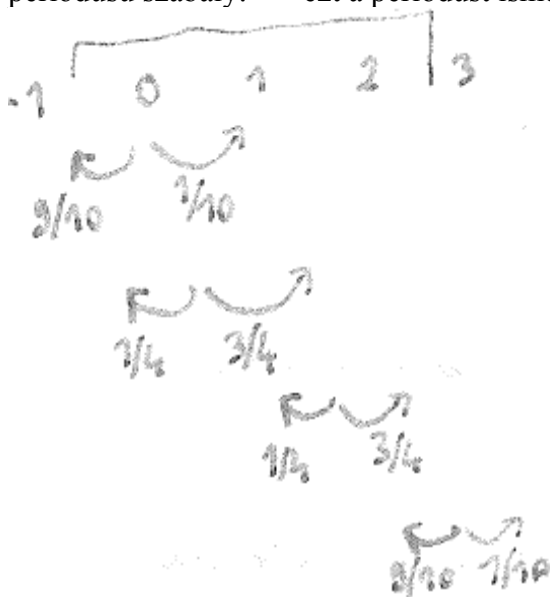 -1 0 1 2 3
9/10 1/10
1/4 3/4
1/4 3/4
9/10 1/10